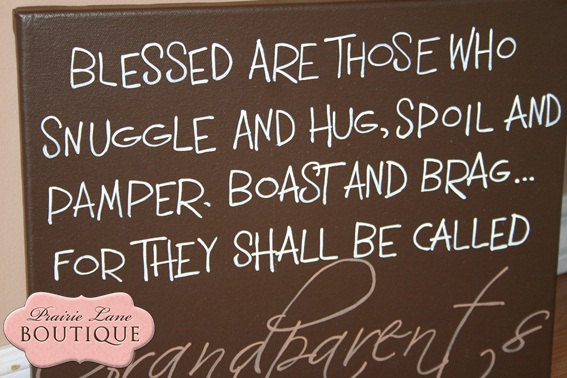 BLESSED ARE THOSE WHO
SNUGGLE AND HUG, SPOIL AND
PAMPER. BOAST AND BRAG...
FOR THEY SHALL BE CALLED
Grandparent's
Prairie Lane
BOUTIQUE